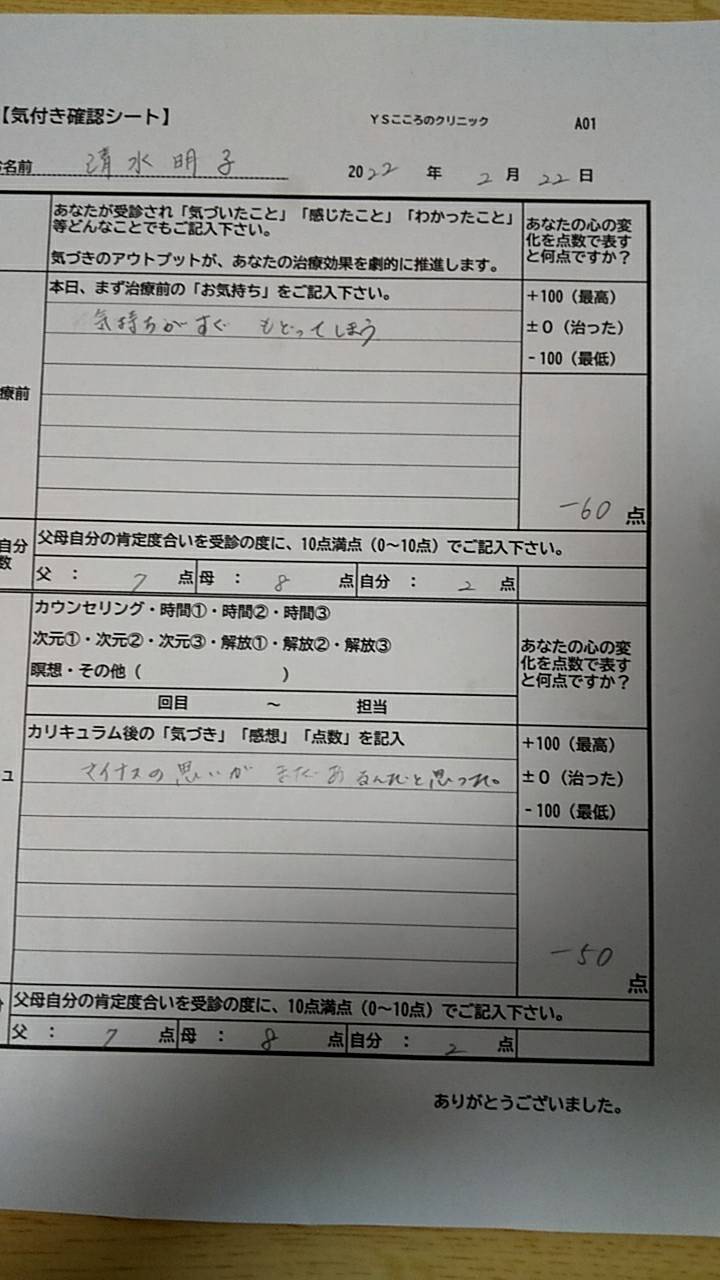 【気付き確認シート】 YSこころのクリニック A01
名前 清水明子 2022年 2月 22日
あなたが受診され「気づいたこと」「感じたこと」「わかったこと」
等どんなことでもご記入下さい。
気づきのアウトプットが、あなたの治療効果を劇的に推進します。
あなたの心の変
化を点数で表す
と何点ですか？
本日、まず治療前の「お気持ち」をご記入下さい。
+100（最高）
±0（治った）
-100（最低）
気持ちがすぐ もどってしまう
療前
-60 点
自分
数
父母自分の肯定度合いを受診の度に、10点満点（0～10点）でご記入下さい。
父： 7 点 母： 8 点 自分： 2 点
カウンセリング・時間①・時間②・時間③
次元①・次元②・次元③・解放①・解放②・解放③
瞑想・その他（ ）
回目 ～ 担当
あなたの心の変
化を点数で表す
と何点ですか？
カリキュラム後の「気づき」「感想」「点数」を記入
+100（最高）
±0（治った）
-100（最低）
ュ
マイナスの思いが まだあるんだと思った。
-50 点
父母自分の肯定度合いを受診の度に、10点満点（0～10点）でご記入下さい。
父： 7 点 母： 8 点 自分： 2 点
ありがとうございました。